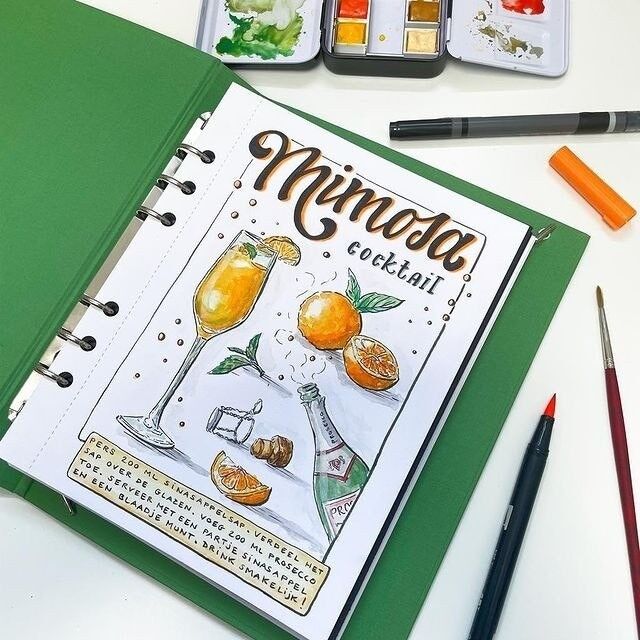 Mimosa
cocktail
PERS 200 ML SINASAPPELSAP. VERDEEL HET
SAP OVER DE GLAZEN. VOEG 200 ML PROSECCO
TOE. SERVEER MET EEN PARTJE SINASAPPEL
EN EEN BLAADJE MUNT. DRINK SMAKELIJK!